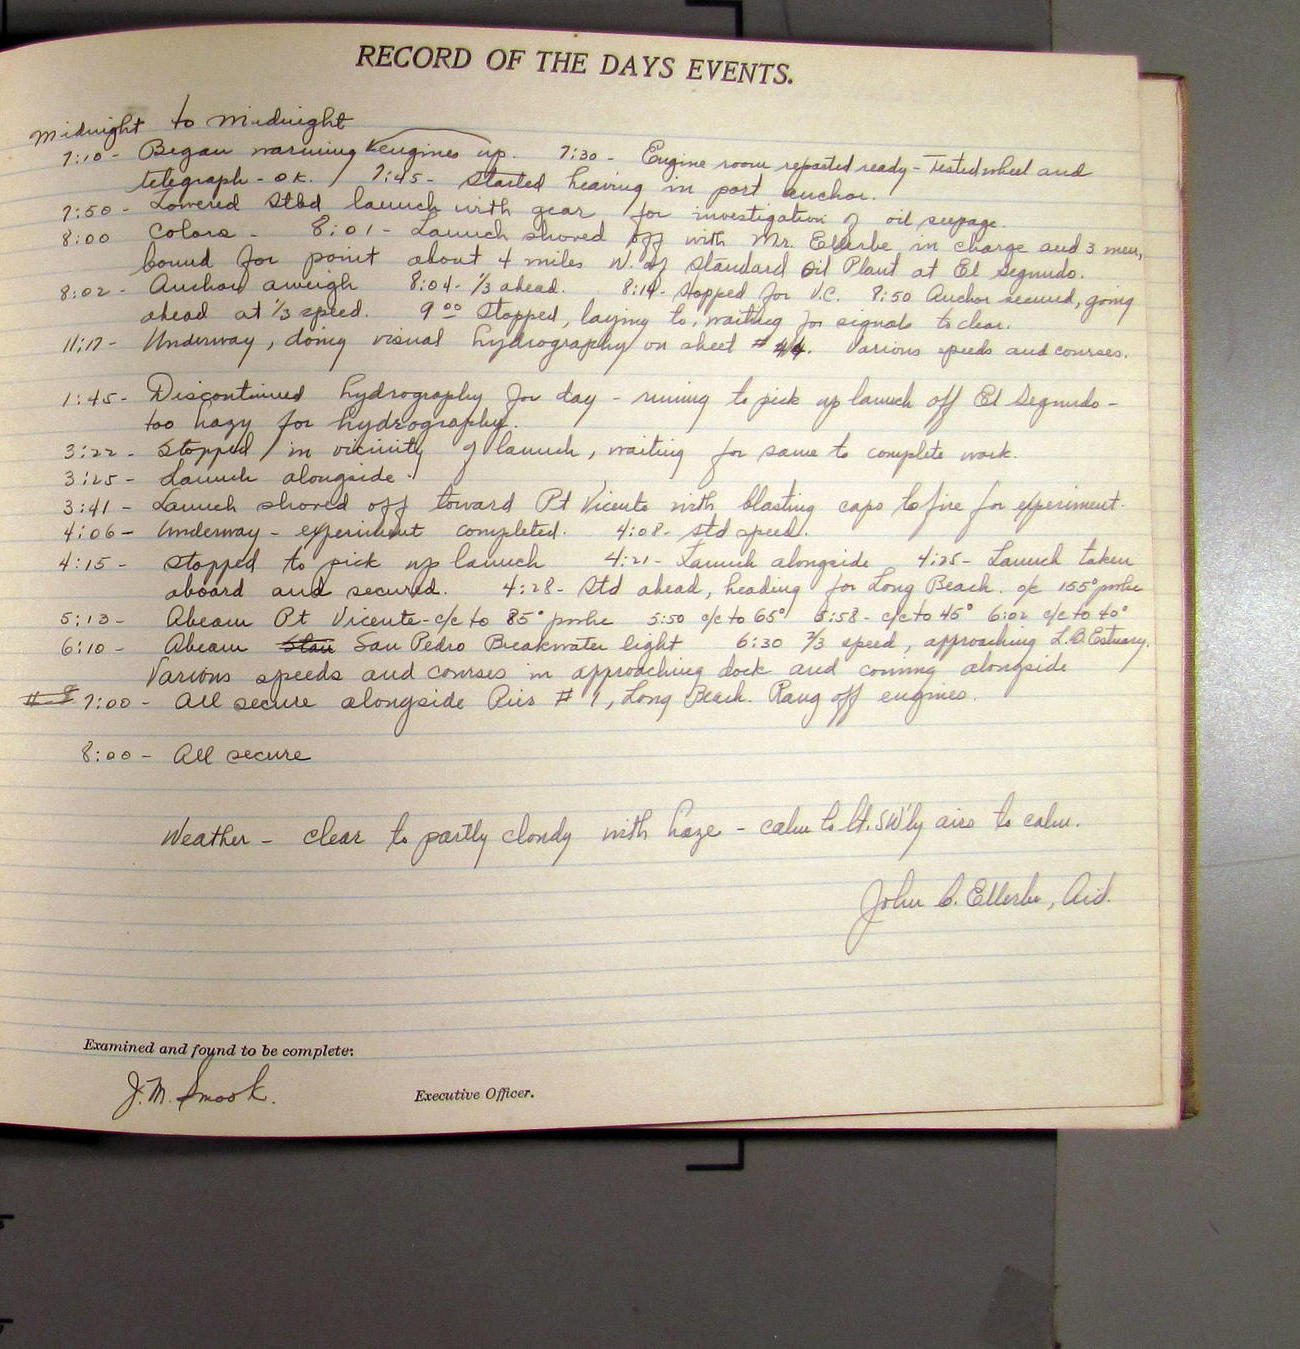 RECORD OF THE DAYS EVENTS.
Midnight to Midnight
7:10- Began warming engines up. 7:30 - Engine room reported ready - Tested wheel and
telegraph - OK. 7:45- Started heaving in port anchor.
7:50 - Lowered Stbd launch with gear for investigation of oil seepage.
8:00 Colors - 8:01 - Launch shoved off with Mr. Ellerbe in charge and 3 men,
bound for point about 4 miles N. of Standard Oil Plant at El Segundo.
8:02 - Anchor aweigh 8:04- 1/3 ahead. 8:14- Stopped for V.C. 8:50 Anchor secured, going
ahead at 1/3 speed. 9 00 Stopped, laying to, waiting for signals to clear.
11:17- Underway, doing visual hydrography on sheet # 44. Various speeds and courses.
1:45- Discontinued hydrography for day - running to pick up launch off El Segundo -
too hazy for hydrography.
3:22 - Stopped in vicinity of launch, waiting for same to complete work.
3:25 - Launch alongside.
3:41 - Launch shoved off toward Pt Vicente with blasting caps to fire for experiment.
4:06 - Underway - experiment completed. 4:08- Std speed.
4:15 - Stopped to pick up launch 4:21- Launch alongside 4:25- Launch taken
aboard and secured. 4:28- Std ahead, heading for Long Beach. c/c 155° pmhc
5:13- Abeam Pt Vicente-c/c to 85° pmhc 5:50 c/c to 65° 5:58- c/c to 45° 6:02 c/c to 40°
6:10 - Abeam San Pedro Breakwater light 6:30 2/3 speed, approaching L.B. Estuary.
Various speeds and courses in approaching dock and coming alongside
7:00 - All secure alongside Pier # 1, Long Beach. Rang off engines.
8:00 - All secure
Weather - clear to partly cloudy with haze - calm to lt. SW'ly airs to calm.
John C. Ellerbe, Aid.
Examined and found to be complete:
J. M. Smook.
Executive Officer.